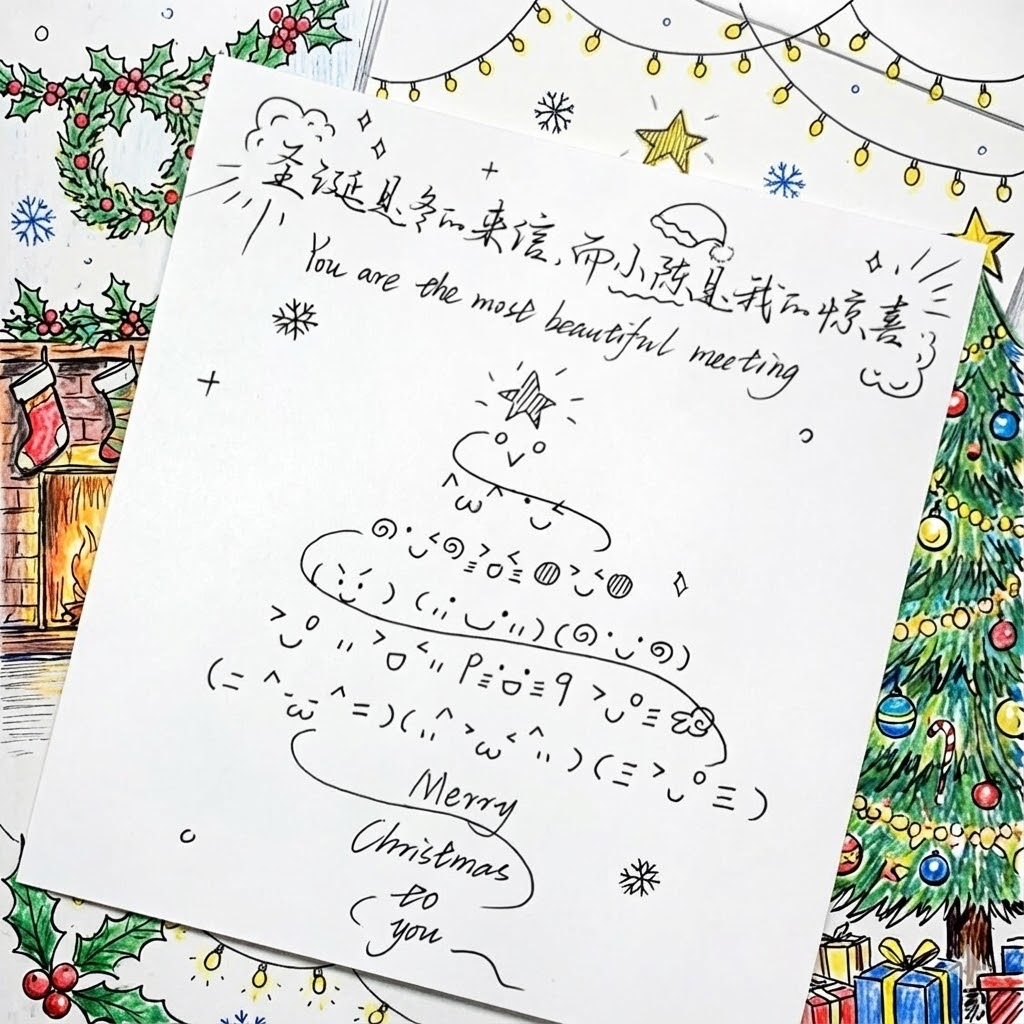 圣诞是冬的来信，而小陈是我的惊喜
You are the most beautiful meeting
Merry
Christmas
to
you